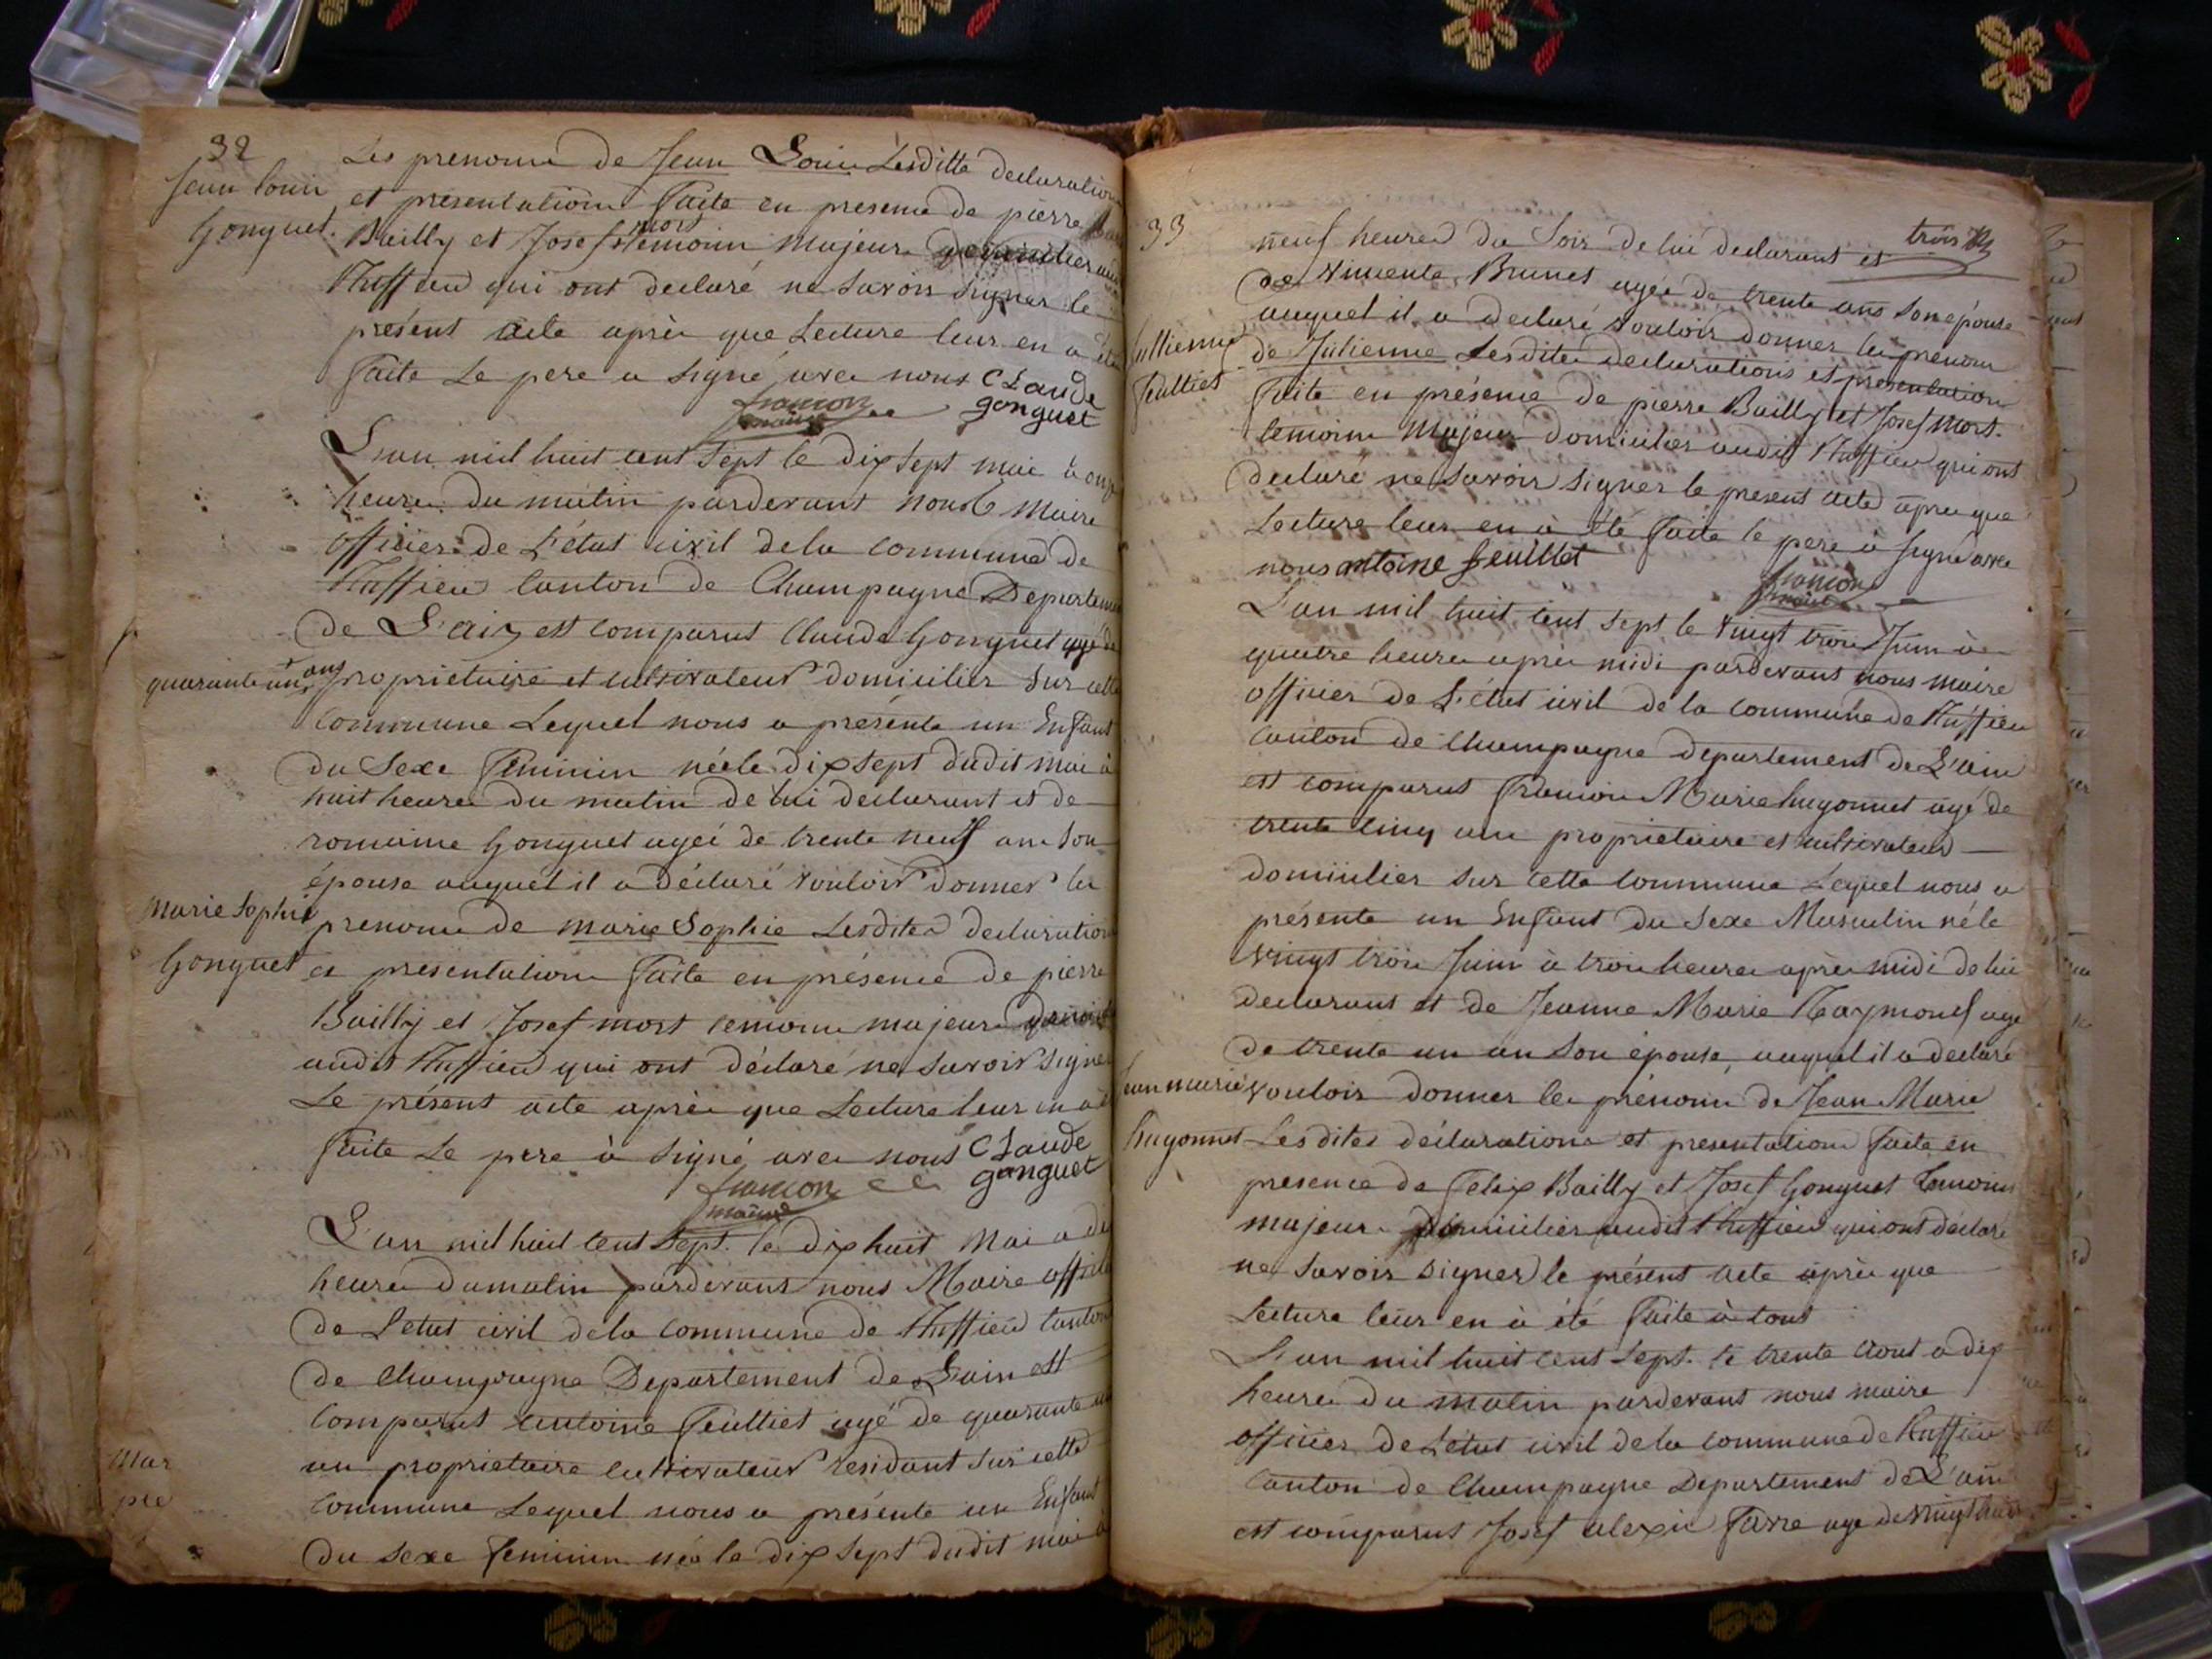 32
Les prenoms de Jean Louis Lesditte declaration
Jean Louis
et presentation faite en presence de pierre
Gonguet.
Bailly et Josef mort temoins majeurs
Ruffieu qui ont declaré ne savoir signer le
présent acte après que Lecture leur en a été
faite Le pere a signé avec nous Claude
gonguet
françon
maire
L'an mil huit cent sept le dix sept mai à onze
heures du matin pardevant nous Maire
officier de L'état civil de la commune de
Ruffieu canton de Champagne Departement
de L'ain est comparut Claude Gonguet agé de
quarante un ans proprietaire et cultivateur domicilier sur cette
commune Lequel nous a présente un Enfant
du Sexe féminin née le dix sept dudit mai à
huit heures du matin de lui declarant et de
romaine Gonguet agée de trente neuf ans son
épouse auquel il a déclaré vouloir donner les
Marie Sophie
prenoms de marie Sophie Lesdites declaration
Gonguet
et presentation faite en présence de pierre
Bailly et Josef mort temoins majeurs
audit Ruffieu qui ont déclaré ne savoir signer
Le présent acte après que Lecture leur en a été
faite Le pere à signé avec nous Claude
gonguet
françon
maire
L'an mil huit cent sept. le dix huit Mai a dix
heures du matin pardevant nous Maire officier
de L'etat civil de la commune de Ruffieu canton
de Champagne Departement de L'ain est
comparut antoine feulliet agé de quarante
an proprietaire cultivateur residant sur cette
Mar
commune Lequel nous a présente un Enfant
pie
du sexe feminin née le dix sept dudit mai à
33
neuf heures du Soir de lui declarant et
trois
de vincente Brunet agée de trente ans son épouse
auquel il a declaré vouloir donner les prenom
Jullienne
de Julienne Lesdites declarations et presentation
feulliet
faite en présence de pierre Bailly et Josef mort.
temoins Majeur domicilier audit Ruffieu qui ont
declaré ne savoir signer le present acte apres que
Lecture leur en à été faite le pere à signé avec
nous antoine feuillet
françon
maire
L'an mil huit cent sept le vingt trois Juin à
quatre heures après midi pardevant nous maire
officier de L'état civil de la commune de Ruffieu
canton de Champagne departement de L'ain
est comparut françois Marie hugonnet agé de
trente cinq ans proprietaire et cultivateur
domicilier sur cette commune Lequel nous a
présente un Enfant du Sexe Masculin né le
vingt trois Juin à trois heures après midi de lui
declarant et de Jeanne Marie Raymond age
de trente un an son épouse, auquel il a declaré
Jean marie
vouloir donner les prénoms de Jean Marie
hugonnet
Lesdites déclarations et presentation faite en
presence de felix Bailly et Josef Gonguet temoins
majeurs domicilier audit Ruffieu qui ont déclaré
ne savoir signer le présent acte après que
Lecture leur en à été faite à tous
L'an mil huit cent sept. le trente aout a dix
heures du matin pardevant nous maire
officier de L'état civil de la commune de Ruffieu
canton de Champagne Departement de L'ain
est comparut Josef alexis favre age de vingt huit